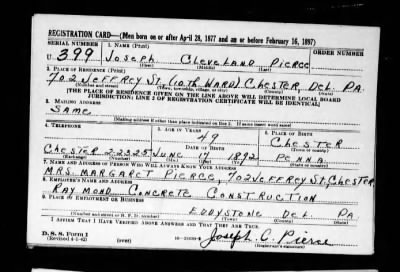 REGISTRATION CARD—(Men born on or after April 28, 1877 and on or before February 16, 1897)
SERIAL NUMBER 1. NAME (Print) ORDER NUMBER
U 399 JOSEPH CLEVELAND PIERCE
(First) (Middle) (Last)
2. PLACE OF RESIDENCE (Print)
702 JEFFREY ST. (10TH WARD) CHESTER, DEL. PA.
(Number and street) (Town, township, village, or city) (County) (State)
[THE PLACE OF RESIDENCE GIVEN ON THE LINE ABOVE WILL DETERMINE LOCAL BOARD
JURISDICTION; LINE 2 OF REGISTRATION CERTIFICATE WILL BE IDENTICAL]
3. MAILING ADDRESS
SAME
[Mailing address if other than place indicated on line 2. If same insert word same]
4. TELEPHONE 5. AGE IN YEARS 6. PLACE OF BIRTH
49 CHESTER
DATE OF BIRTH (Town or county)
CHESTER 2-2325 JUNE 1892 PENNA.
(Exchange) (Number) (Mo.) (Day) (Yr.) (State or country)
7. NAME AND ADDRESS OF PERSON WHO WILL ALWAYS KNOW YOUR ADDRESS
MRS. MARGARET PIERCE, 702 JEFFREY ST., CHESTER
8. EMPLOYER'S NAME AND ADDRESS
RAYMOND CONCRETE CONSTRUCTION
9. PLACE OF EMPLOYMENT OR BUSINESS
EDDYSTONE DEL. PA
(Number and street or R. F. D. number) (Town) (County) (State)
I AFFIRM THAT I HAVE VERIFIED ABOVE ANSWERS AND THAT THEY ARE TRUE.
D. S. S. Form 1
(Revised 4-1-42) (over) Joseph C. Pierce
(Registrant's signature)